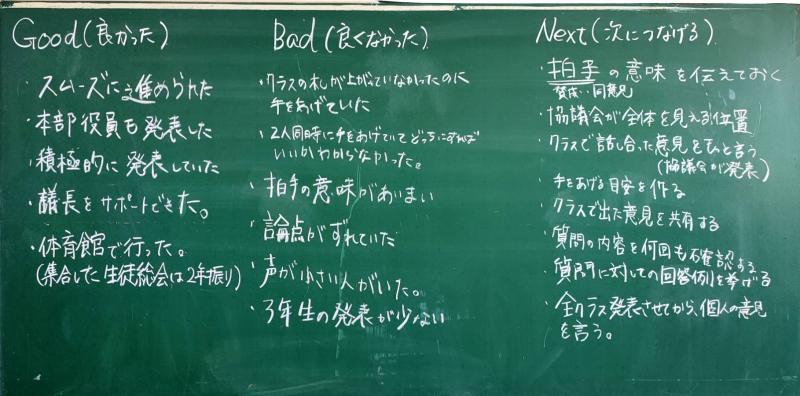 Good(良かった)
・スムーズに進められた
・本部役員も発表した
・積極的に発表していた
・議長をサポートできた。
・体育館で行った。
(集合した生徒総会は2年振り)
Bad(良くなかった)
・クラスの札が上がっていなかったのに
手をあげていた
・2人同時に手をあげていてどっちにすれば
いいかわからなかった。
・拍手の意味があいまい
・論点がずれていた
・声が小さい人がいた。
・3年生の発表が少ない
Next(次につなげる)
・拍手の意味を伝えておく
賛成・同意見
・協議会が全体を見える位置
・クラスで話し合った意見をもっと言う
(協議会が発表)
・手をあげる目安を作る
・クラスで出た意見を共有する
・質問の内容を何回も確認する
・質問に対しての回答例を挙げる
・全クラス発表させてから、個人の意見
を言う。